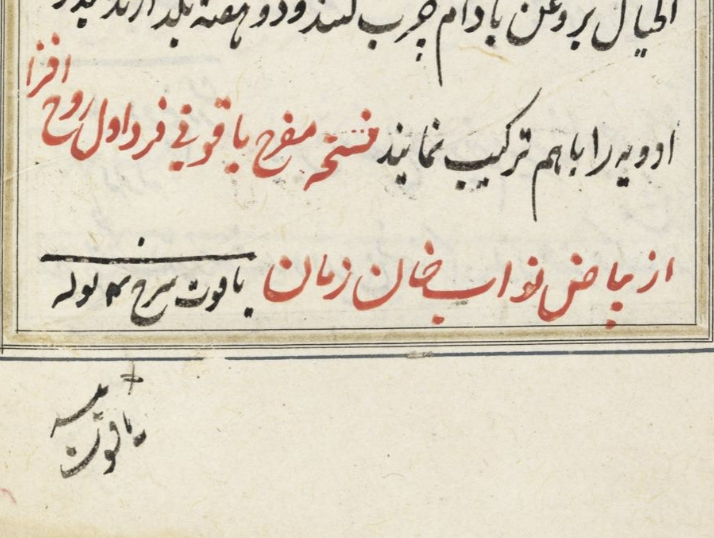 الحال بروغن بادام چرب کنند و دو هفته بگذارند
ادویه را باهم ترکیب نمایند نسخه مفرح یاقوتی فرد اول روح افزا
از بیاض نواب خان زمان یاقوت سرخ توله
یاقوت